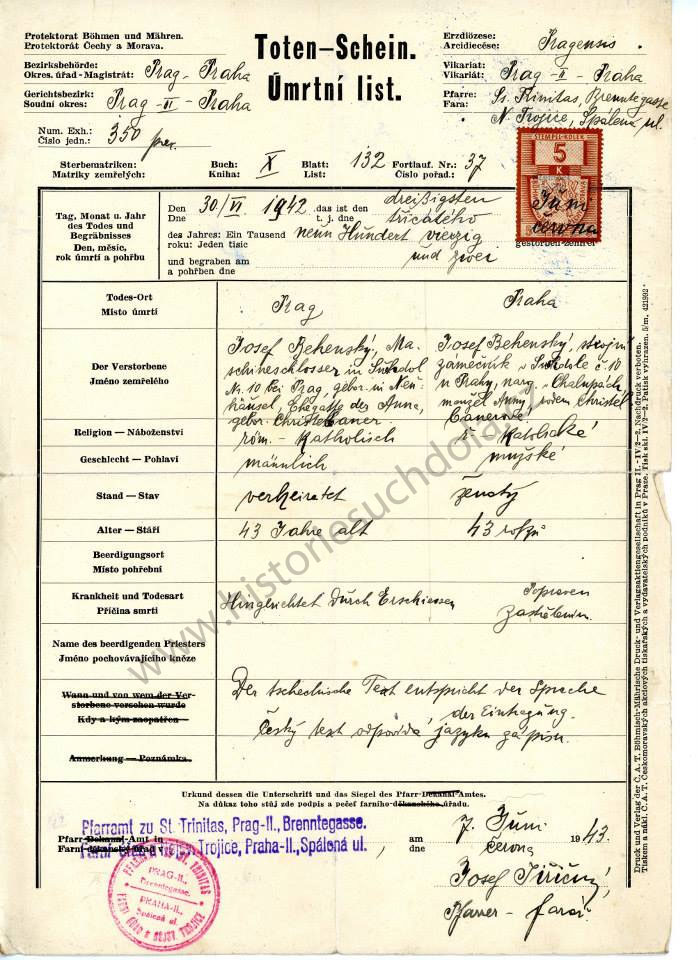 Protektorat Böhmen und Mähren.
Protektorát Čechy a Morava.
Bezirksbehörde:
Okres. úřad - Magistrát: Prag - Praha
Gerichtsbezirk:
Soudní okres: Prag - II - Praha
Num. Exh.:
Číslo jedn.: 350
Toten-Schein.
Úmrtní list.
Erzdiözese:
Arcidiecése: Pragensis
Vikariat:
Vikariát: Prag - II - Praha
Pfarre: Ss. Trinitas, Brenntegasse
Fara: N. Trojice, Spálená ul.
Sterbematriken: Buch: Blatt: Fortlauf. Nr.:
Matriky zemřelých: Kniha: X List: 132 Číslo pořad.: 37
STEMPEL-KOLEK
5
K
Tag, Monat u. Jahr
des Todes und
Begräbnisses
Den, měsíc,
rok úmrtí a pohřbu
Den 30/VI 1942 das ist den dreißigsten Juni
Dne t. j. dne třicátého června
des Jahres: Ein Tausend neun Hundert vierzig
roku: Jeden tisíc und zwei
gestorben-zemřel
und begraben am
a pohřben dne
Todes-Ort
Místo úmrtí
Prag
Praha
Der Verstorbene
Jméno zemřelého
Josef Behenský, Ma-
schineschlosser in Suchdol
Nr. 10 bei Prag, gebor. in Neu-
häusel, Ehegatte der Anna,
gebor. Christel
Josef Behenský, strojní
zámečník v Suchdole č. 10
u Prahy, nar. v Chalupách
manžel Anny, rodem Christel
Religion — Náboženství
röm. - Katholisch
ř. Katolické
Geschlecht — Pohlaví
männlich
mužské
Stand — Stav
verheiratet
ženatý
Alter — Stáří
43 Jahre alt
43 roků
Beerdigungsort
Místo pohřební
Krankheit und Todesart
Příčina smrti
Hingerichtet durch Erschiessen
Popraven
zastřelením
Name des beerdigenden Priesters
Jméno pochovávajícího kněze
Wann und von wem der Ver-
storbene versehen wurde
Kdy a kým zaopatřen
Der tschechische Text entspricht der Sprache
der Eintragung.
Český text odpovídá jazyku zápisu.
Anmerkung — Poznámka.
Urkund dessen die Unterschrift und das Siegel des Pfarr-Dekanal-Amtes.
Na důkaz toho stůj zde podpis a pečeť farního-děkanského úřadu.
Pfarr-Dekanal-Amt in
Farní-děkanský úřad v
Pfarramt zu St. Trinitas, Prag-II., Brenntegasse.
Trojice, Praha-II., Spálená ul.
am 7. Juni 1943.
dne června
Josef Jiřičný,
Pfarrer - farář.
PRAG-II.,
Brenntegasse.
PRAHA-II.,
Spálená ul.
www.historiesuchdola.cz
Druck und Verlag der Č. A. T. Böhmisch-Mährische Druck- und Verlagsaktiengesellschaft in Prag II. - IV/2—2. Nachdruck verboten.
Tiskem a nákl. Č. A. T. Českomoravských akciových tiskařských a vydavatelských podniků v Praze. Tisk skl. IV/2—2. Patisk vyhrazen. 5/m. 421902